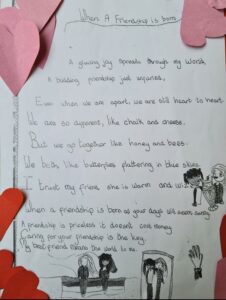 When A Friendship is born
A glowing joy spreads through my world,
A budding friendship just
Even when we are apart, we are still heart to heart.
We are so apparent, like chalk and cheese.
But we go together like honey and bees.
We both like butterflies fluttering in blue skies.
I trust my friend, she is warm and
When a friendship is born all your days will seem sunny
A friendship is priceless it doesnt cost money
Caring for your friendship is the key.
My best friend means the world to me.